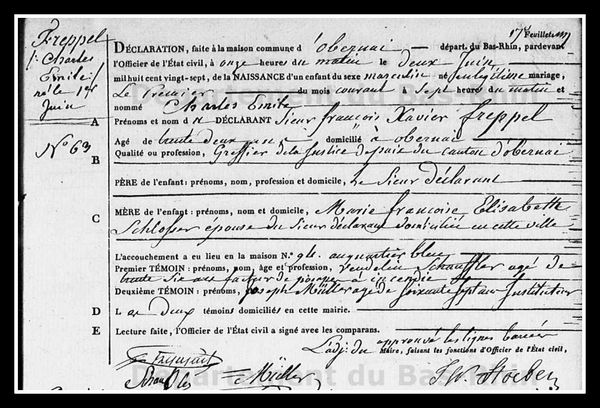 17e feuillet
Freppel
Charles
Emile
né le 1er
Juin
N° 63
DÉCLARATION, faite à la maison commune d'obernai — départ. du Bas-Rhin, pardevant
l'Officier de l'État civil, à onze heures du matin le deux Juin
mil huit cent vingt-sept, de la NAISSANCE d'un enfant du sexe masculin né en légitime mariage,
Le premier du mois courant à Sept heures du matin et
nommé Charles Emile
A
Prénoms et nom du DÉCLARANT Sieur françois Xavier freppel
Agé de trente deux ans domicilié à obernai
B
Qualité ou profession, Greffier de la Justice de paix du canton d'obernai
PÈRE de l'enfant: prénoms, nom, profession et domicile, le Sieur déclarant
C
MÈRE de l'enfant: prénoms, nom et domicile, Marie françoise Elisabeth
Schlosser épouse du Sieur déclarant domiciliée en cette ville
L'accouchement a eu lieu en la maison N.° 94. au quartier bleu
Premier TÉMOIN: prénoms, nom, âge et profession, Vendelin Schauffler agé de
trente
Deuxième TÉMOIN: prénoms, Joseph Müller agé de soixante sept ans Instituteur
D
L es deux témoins domiciliés en cette mairie.
E
Lecture faite, l'Officier de l'État civil a signé avec les comparans.
approuvé les lignes barrées
L'adj. du Maire, faisant les fonctions d'Officier de l'État civil,
Müller
Département du Bas-Rhin